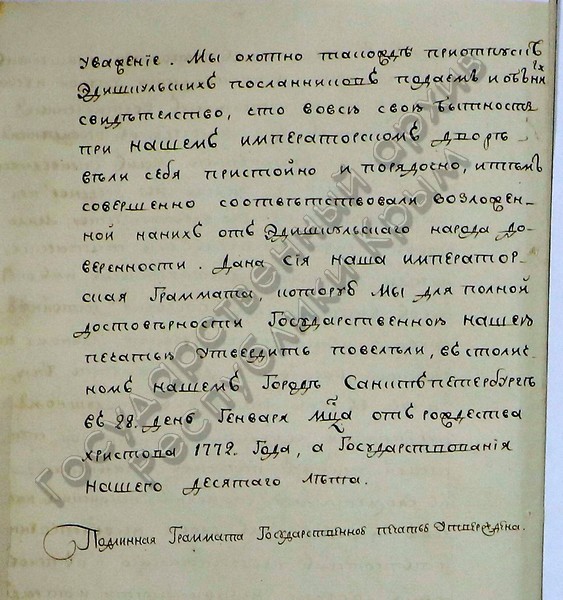 уваженіе. Мы охотно такожде приотпускѣ
Эдишкульскихъ посланниковъ подаемъ и объ нихъ
свидѣтельство, что вовсю свою бытность
при нашемъ императорскомъ дворѣ
вѣли себя пристойно и порядочно, итѣмъ
совершенно соотвѣтствовали возложен-
ной нанихъ отъ Эдишкульскаго народа до-
веренности. Дана сія наша император-
ская Граммата, которую Мы для полной
достовѣрности Государственною нашею
печатью утвердить повелѣли, въ столич-
номъ нашемъ Городѣ Санктъпетербургѣ
въ 28. день Генваря мца отъ рождества
христова 1772. Года, а Государствованія
нашего десятаго лѣта.
Подлинная Граммата Государственною печатью Утверждена.
Государственный архив
Республики Крым